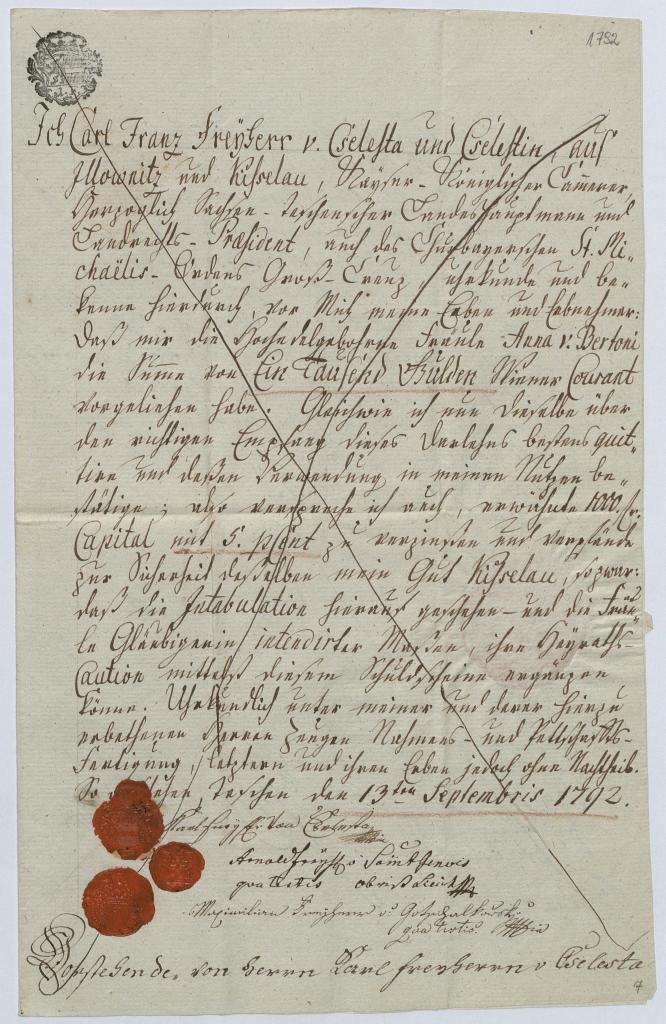 1792
Ich Carl Franz Freyherr v. Cselesta und Cselestin, aus
Illownitz und Kisselau, Kayser-Königlicher Cammerer,
Herzoglich Sachsen-Teschenscher Landeshauptmann und
Landrechts-Præsident, auch des Churbayerschen St. Mi-
chaëlis-Ordens Groß-Creuz, uhrkunde und be-
kenne hierdurch, vor Mich meine Erben und Erbnehmer:
daß mir die Hochedelgebohrne Fräule Anna v. Bertoni
die Summe von Ein Tausend Gulden Wiener Courant
vorgeliehen habe. Gleichwie ich nun Dieselbe über
den richtigen Empfang dieses Darlehns bestens quit-
tire und deßen Verwendung in meinen Nutzen be-
stätige; also verspreche ich auch, erwähnte 1000. fr.
Capital mit 5. pCent zu verzinßen und verpfände
zur Sicherheit deßelben mein Gut Kisselau, so zwar:
daß die Intabulation hierauf geschehen- und die Fräu-
le Gläubigerin intendirter Maßen, ihre Heyraths-
Caution mittelst diesem Schuldscheine ergänzen
könne. Uhrkundlich unter meiner und derer hierzu
erbethenen Herren Zeugen Nahmens- und Pettschafts-
Fertigung, letztern und ihren Erben jedoch ohne Nachtheil.
So Teschen den 13ten Septembris 1792.
Karl von Cselesta
Arnold v Saint Genois
qua testis obrist Lieut
Maximilian Freyherr v: Gotschalkowsky
qua testis.
Vorstehende, von Herrn Karl Freyherrn v Cselesta